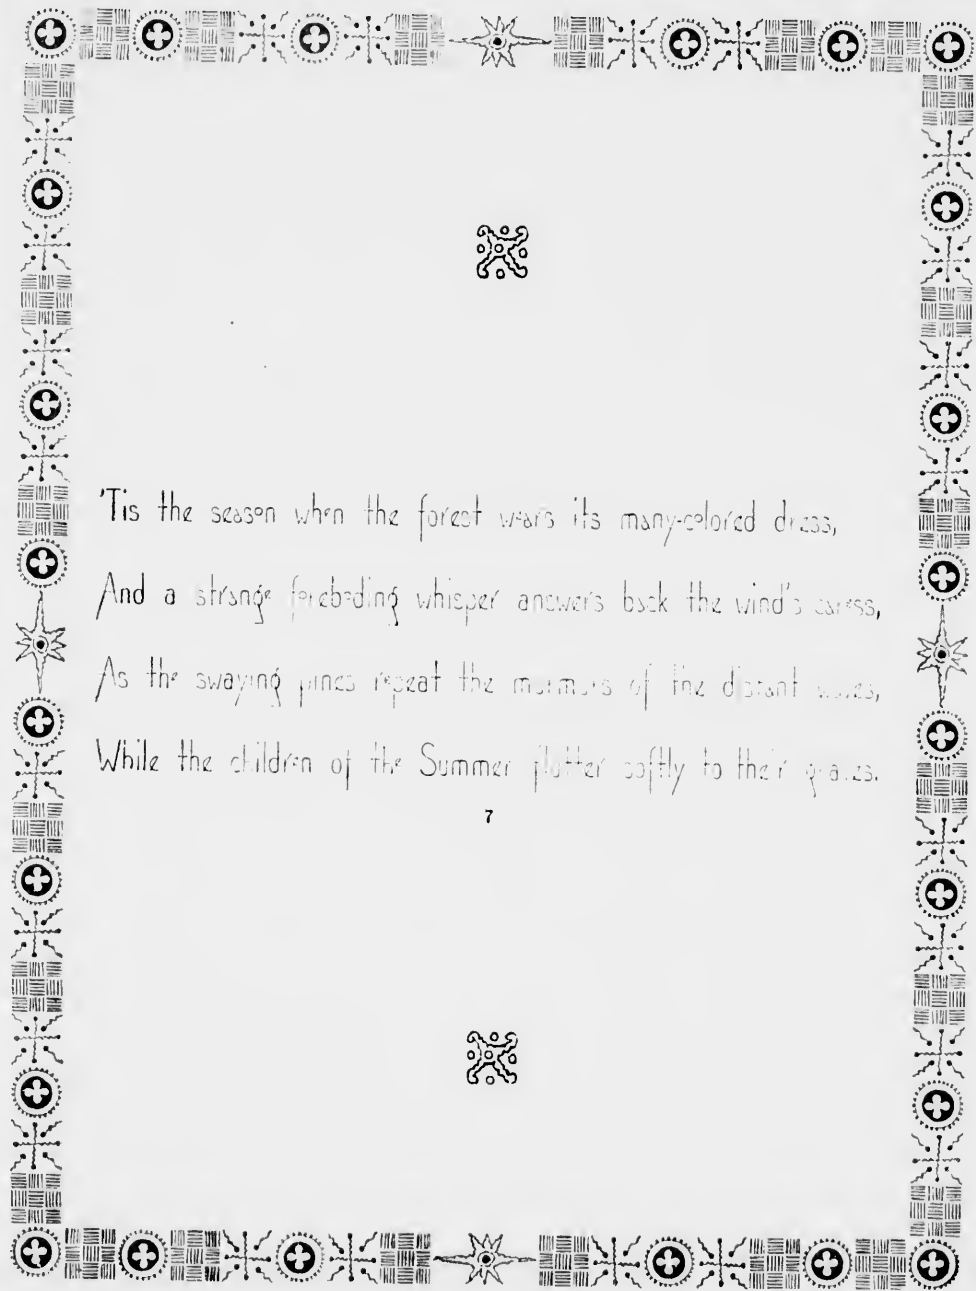 'Tis the season when the forest wears its many-colored dress,
And a strange foreboding whisper answers back the wind's caress,
As the swaying pines repeat the murmurs of the distant waves,
While the children of the Summer flutter softly to their graves.
7